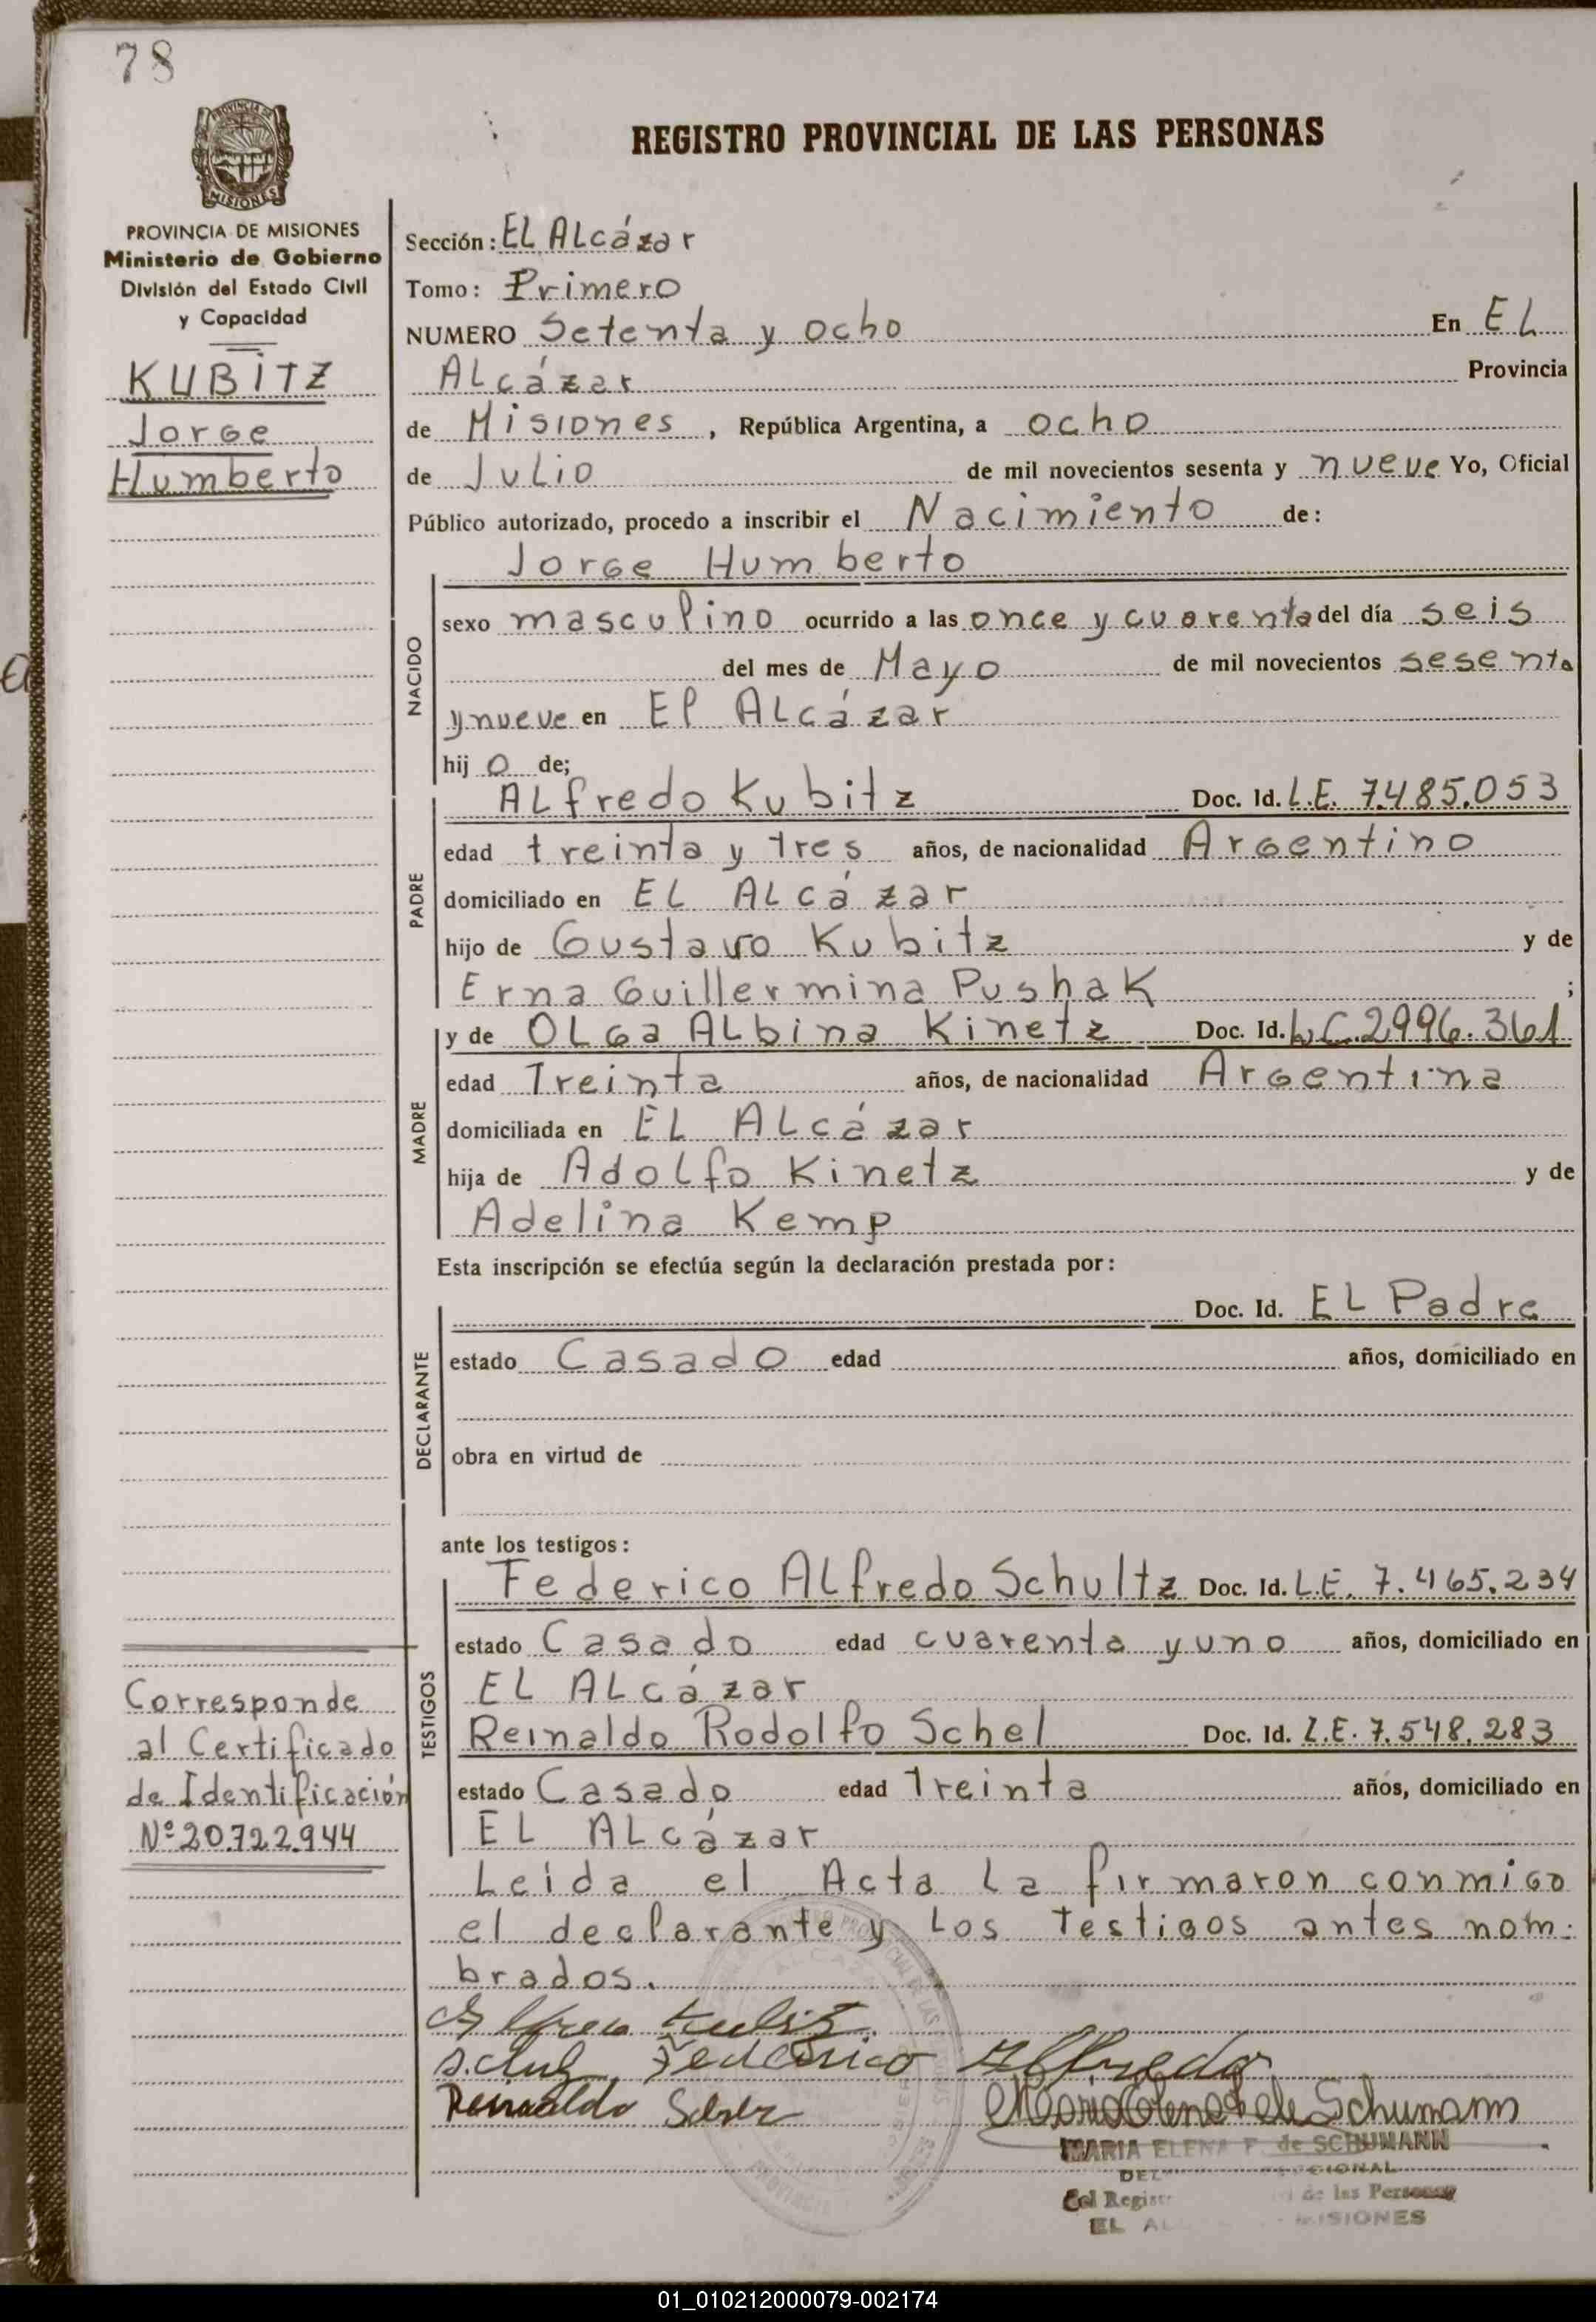 78
PROVINCIA DE
MISIONES
REGISTRO PROVINCIAL DE LAS PERSONAS
PROVINCIA DE MISIONES
Ministerio de Gobierno
División del Estado Civil
y Capacidad
KUBITZ
Jorge
Humberto
Sección: EL ALcázar
Tomo: Primero
NUMERO Setenta y ocho En EL
ALcázar Provincia
de Misiones, República Argentina, a ocho
de Julio de mil novecientos sesenta y nueve Yo, Oficial
Público autorizado, procedo a inscribir el Nacimiento de:
Jorge Humberto
NACIDO
sexo masculino ocurrido a las once y cuarenta del día seis
del mes de Mayo de mil novecientos sesenta
y nueve en El ALcázar
hij o de;
PADRE
ALfredo Kubitz Doc. Id. L.E. 7.485.053
edad treinta y tres años, de nacionalidad Argentino
domiciliado en EL ALcázar
hijo de Gustavo Kubitz y de
Erna Guillermina Pushak ;
MADRE
y de OLga ALbina Kinetz Doc. Id. L.C. 2.996.361
edad Treinta años, de nacionalidad Argentina
domiciliada en EL ALcázar
hija de AdoLfo Kinetz y de
Adelina Kemp
Esta inscripción se efectúa según la declaración prestada por:
DECLARANTE
Doc. Id. EL Padre
estado Casado edad años, domiciliado en
obra en virtud de
ante los testigos:
TESTIGOS
Federico ALfredo Schultz Doc. Id. L.E. 7.465.234
estado Casado edad cuarenta y uno años, domiciliado en
EL ALcázar
Reinaldo Rodolfo Schel Doc. Id. L.E. 7.548.283
estado Casado edad Treinta años, domiciliado en
EL ALcázar
Corresponde
al Certificado
de Identificación
Nº 20.722.944
Leida el Acta La firmaron conmigo
el declarante y Los Testigos antes nom-
brados.
Federico Alfredo
Reinaldo
Maria Elena F de Schumann
MARIA ELENA F. de SCHUMANN
del Regist de las Personas
EL AL MISIONES
01_010212000079-002174